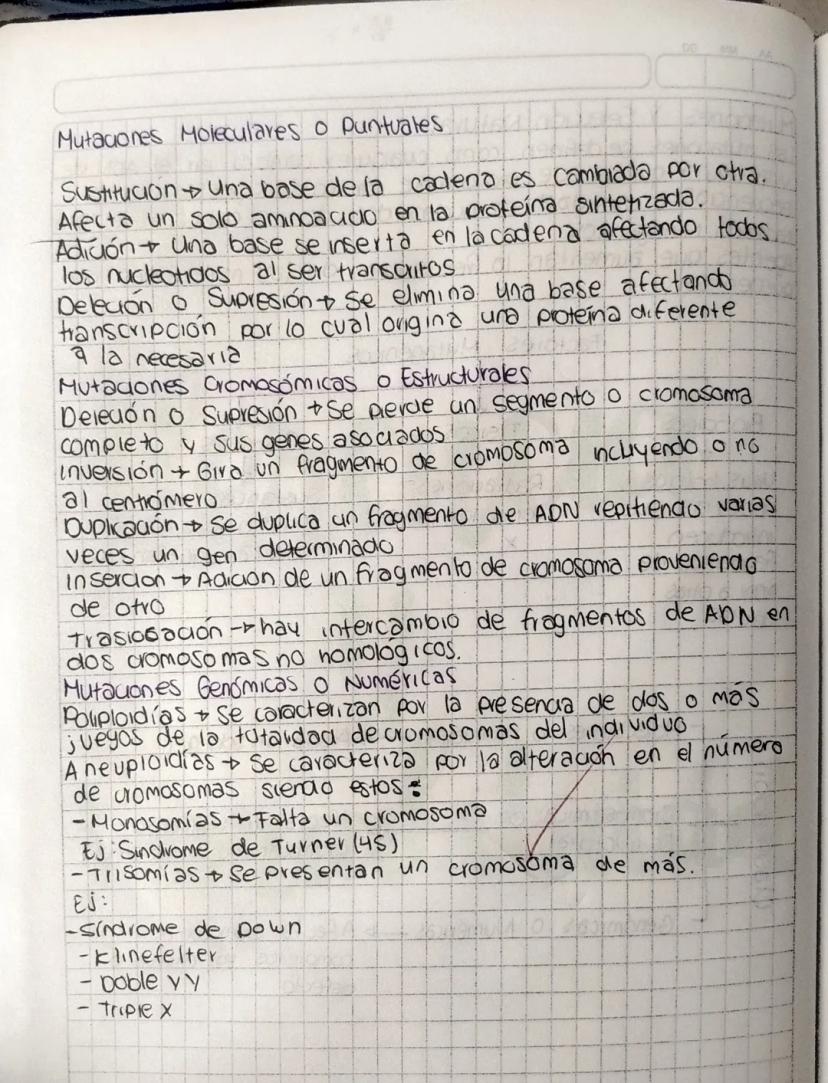 Mutaciones Moleculares o Puntuales
Sustitución → Una base de la cadena es cambiada por otra.
Afecta un solo aminoacido en la proteína sintetizada.
Adición → Una base se inserta en la cadena afectando todos
los nucleotidos al ser transcritos
Deleción o Supresión → Se elimina una base afectando
transcripción por lo cual origina una proteína diferente
a la necesaria
Mutaciones Cromosómicas o Estructurales
Deleción o Supresión → Se pierde un segmento o cromosoma
completo y sus genes asociados
Inversión → Gira un fragmento de cromosoma incluyendo o no
al centrómero
Duplicación → Se duplica un fragmento de ADN repitiendo varias
veces un gen determinado
Inserción → Adición de un fragmento de cromosoma proveniendo
de otro
Traslocación → hay intercambio de fragmentos de ADN en
dos cromosomas no homológicos.
Mutaciones Genómicas o Numéricas
Poliploidías → Se caracterizan por la presencia de dos o más
juegos de la totalidad de cromosomas del individuo
Aneuploidías → Se caracteriza por la alteración en el número
de cromosomas siendo estos:
- Monosomías → Falta un cromosoma
Ej: Sindrome de Turner (45)
- Trisomías → Se presentan un cromosoma de más.
Ej:
- Síndrome de Down
- Klinefelter
- Doble YY
- Triple X